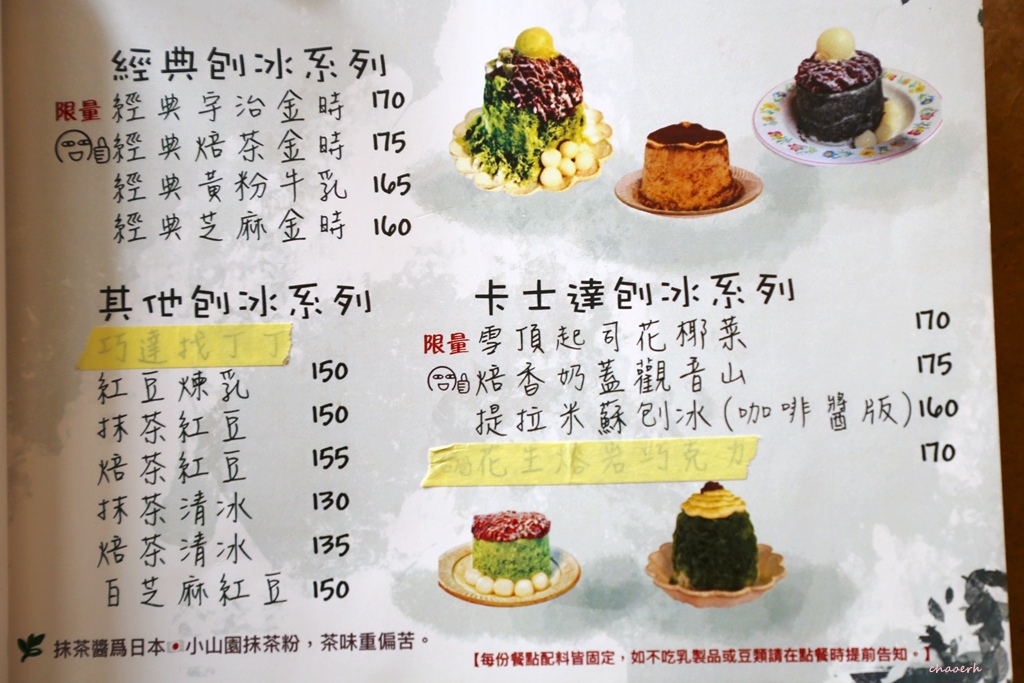 經典刨冰系列
限量 經典宇治金時 170
經典焙茶金時 175
經典黃粉牛乳 165
經典芝麻金時 160
其他刨冰系列
巧達找丁丁
紅豆煉乳 150
抹茶紅豆 150
焙茶紅豆 155
抹茶清冰 130
焙茶清冰 135
白芝麻紅豆 150
卡士達刨冰系列
限量 雪頂起司花椰菜 170
焙香奶蓋觀音山 175
提拉米蘇刨冰(咖啡醬版) 160
花生熔岩巧克力 170
抹茶醬爲日本🇯🇵小山園抹茶粉，茶味重偏苦。
【每份餐點配料皆固定，如不吃乳製品或豆類請在點餐時提前告知。】
chaoerh